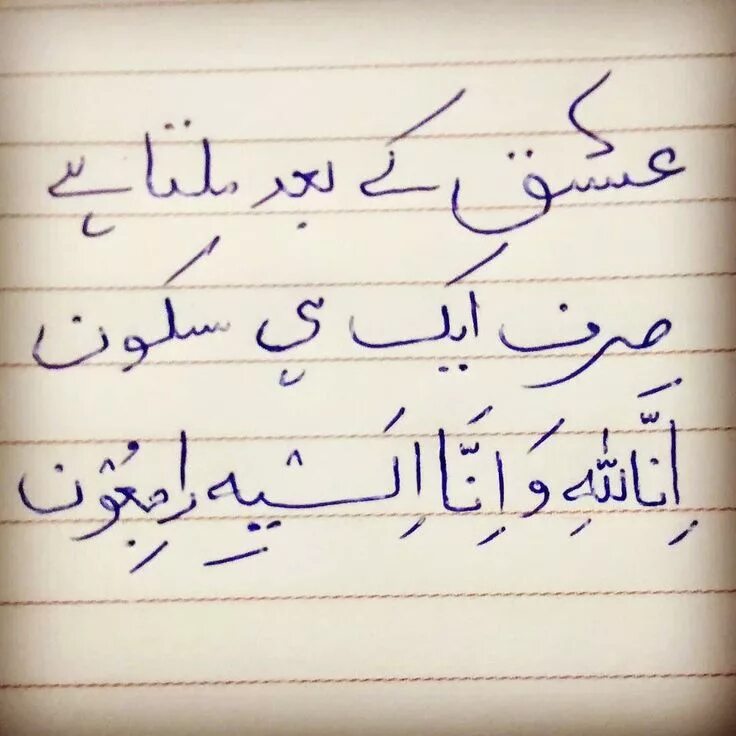 عشق کے بعد ملتا ہے
صرف ایک ہی سکون
اِنَّالِلّٰہِ وَاِنَّا اِلَـیْہِ رَاجِعُوْن